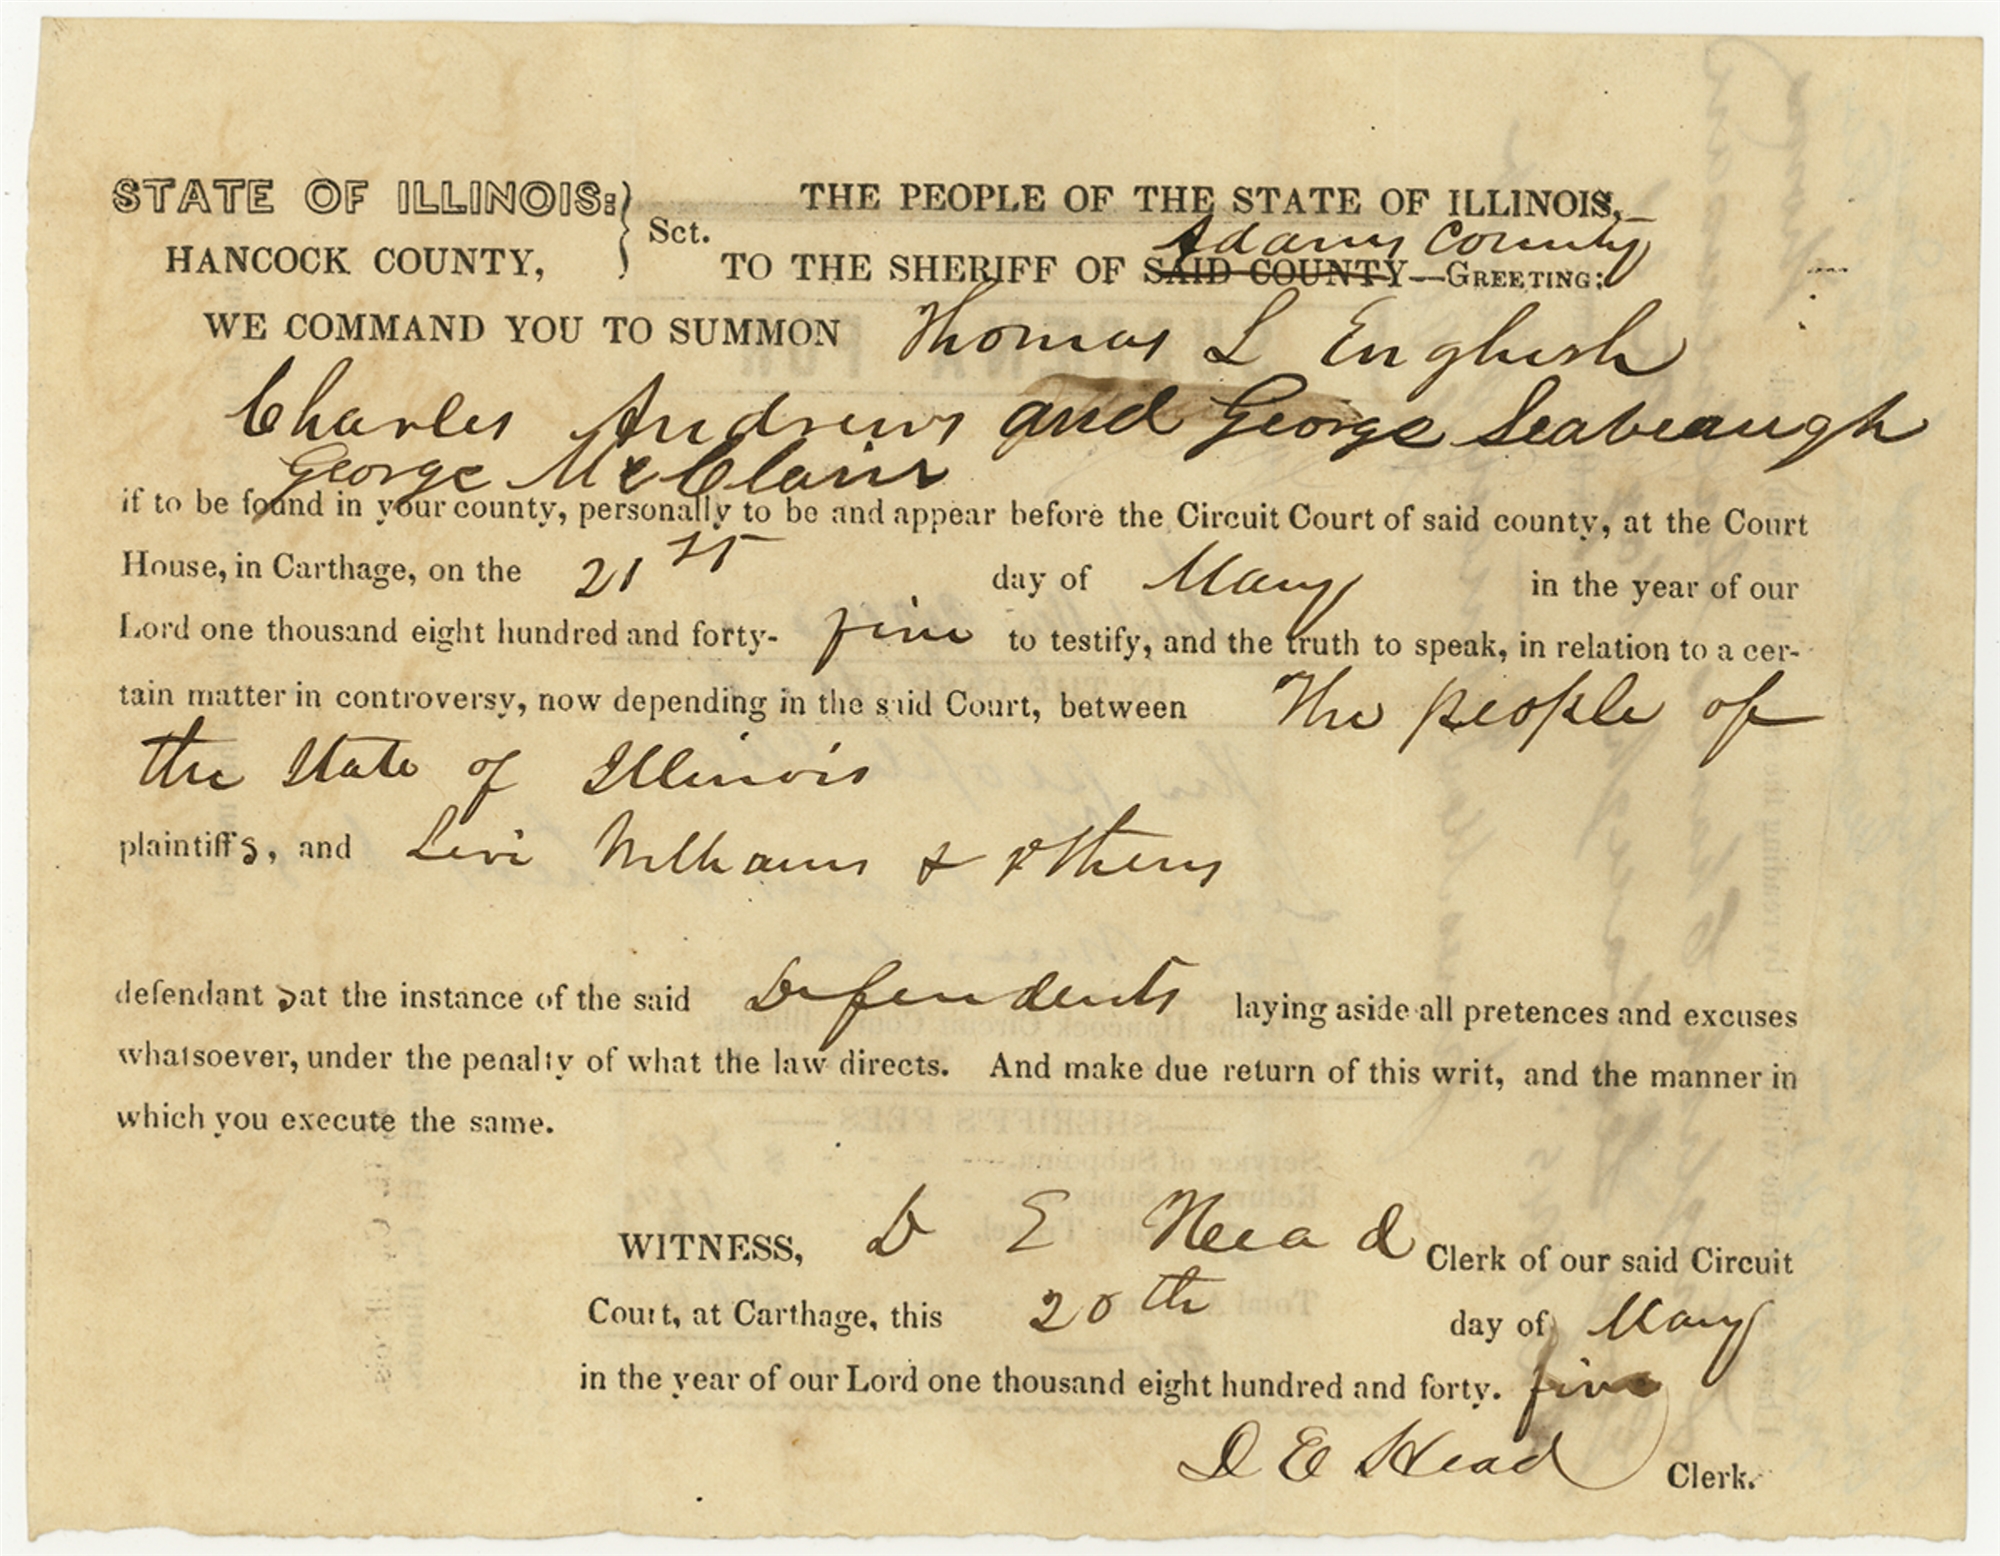 STATE OF ILLINOIS:
HANCOCK COUNTY,
Sct.
THE PEOPLE OF THE STATE OF ILLINOIS,
Adams County
TO THE SHERIFF OF SAID COUNTY—GREETING:
WE COMMAND YOU TO SUMMON Thomas L English
Charles Andrews and George Seabeaugh
George McClain
if to be found in your county, personally to be and appear before the Circuit Court of said county, at the Court
House, in Carthage, on the 21st day of May in the year of our
Lord one thousand eight hundred and forty- five to testify, and the truth to speak, in relation to a cer-
tain matter in controversy, now depending in the said Court, between The people of
the State of Illinois
plaintiffs, and Levi Williams & others
defendant s at the instance of the said Defendents laying aside all pretences and excuses
whatsoever, under the penalty of what the law directs. And make due return of this writ, and the manner in
which you execute the same.
WITNESS, D E Head Clerk of our said Circuit
Court, at Carthage, this 20th day of May
in the year of our Lord one thousand eight hundred and forty. five
D E Head Clerk.